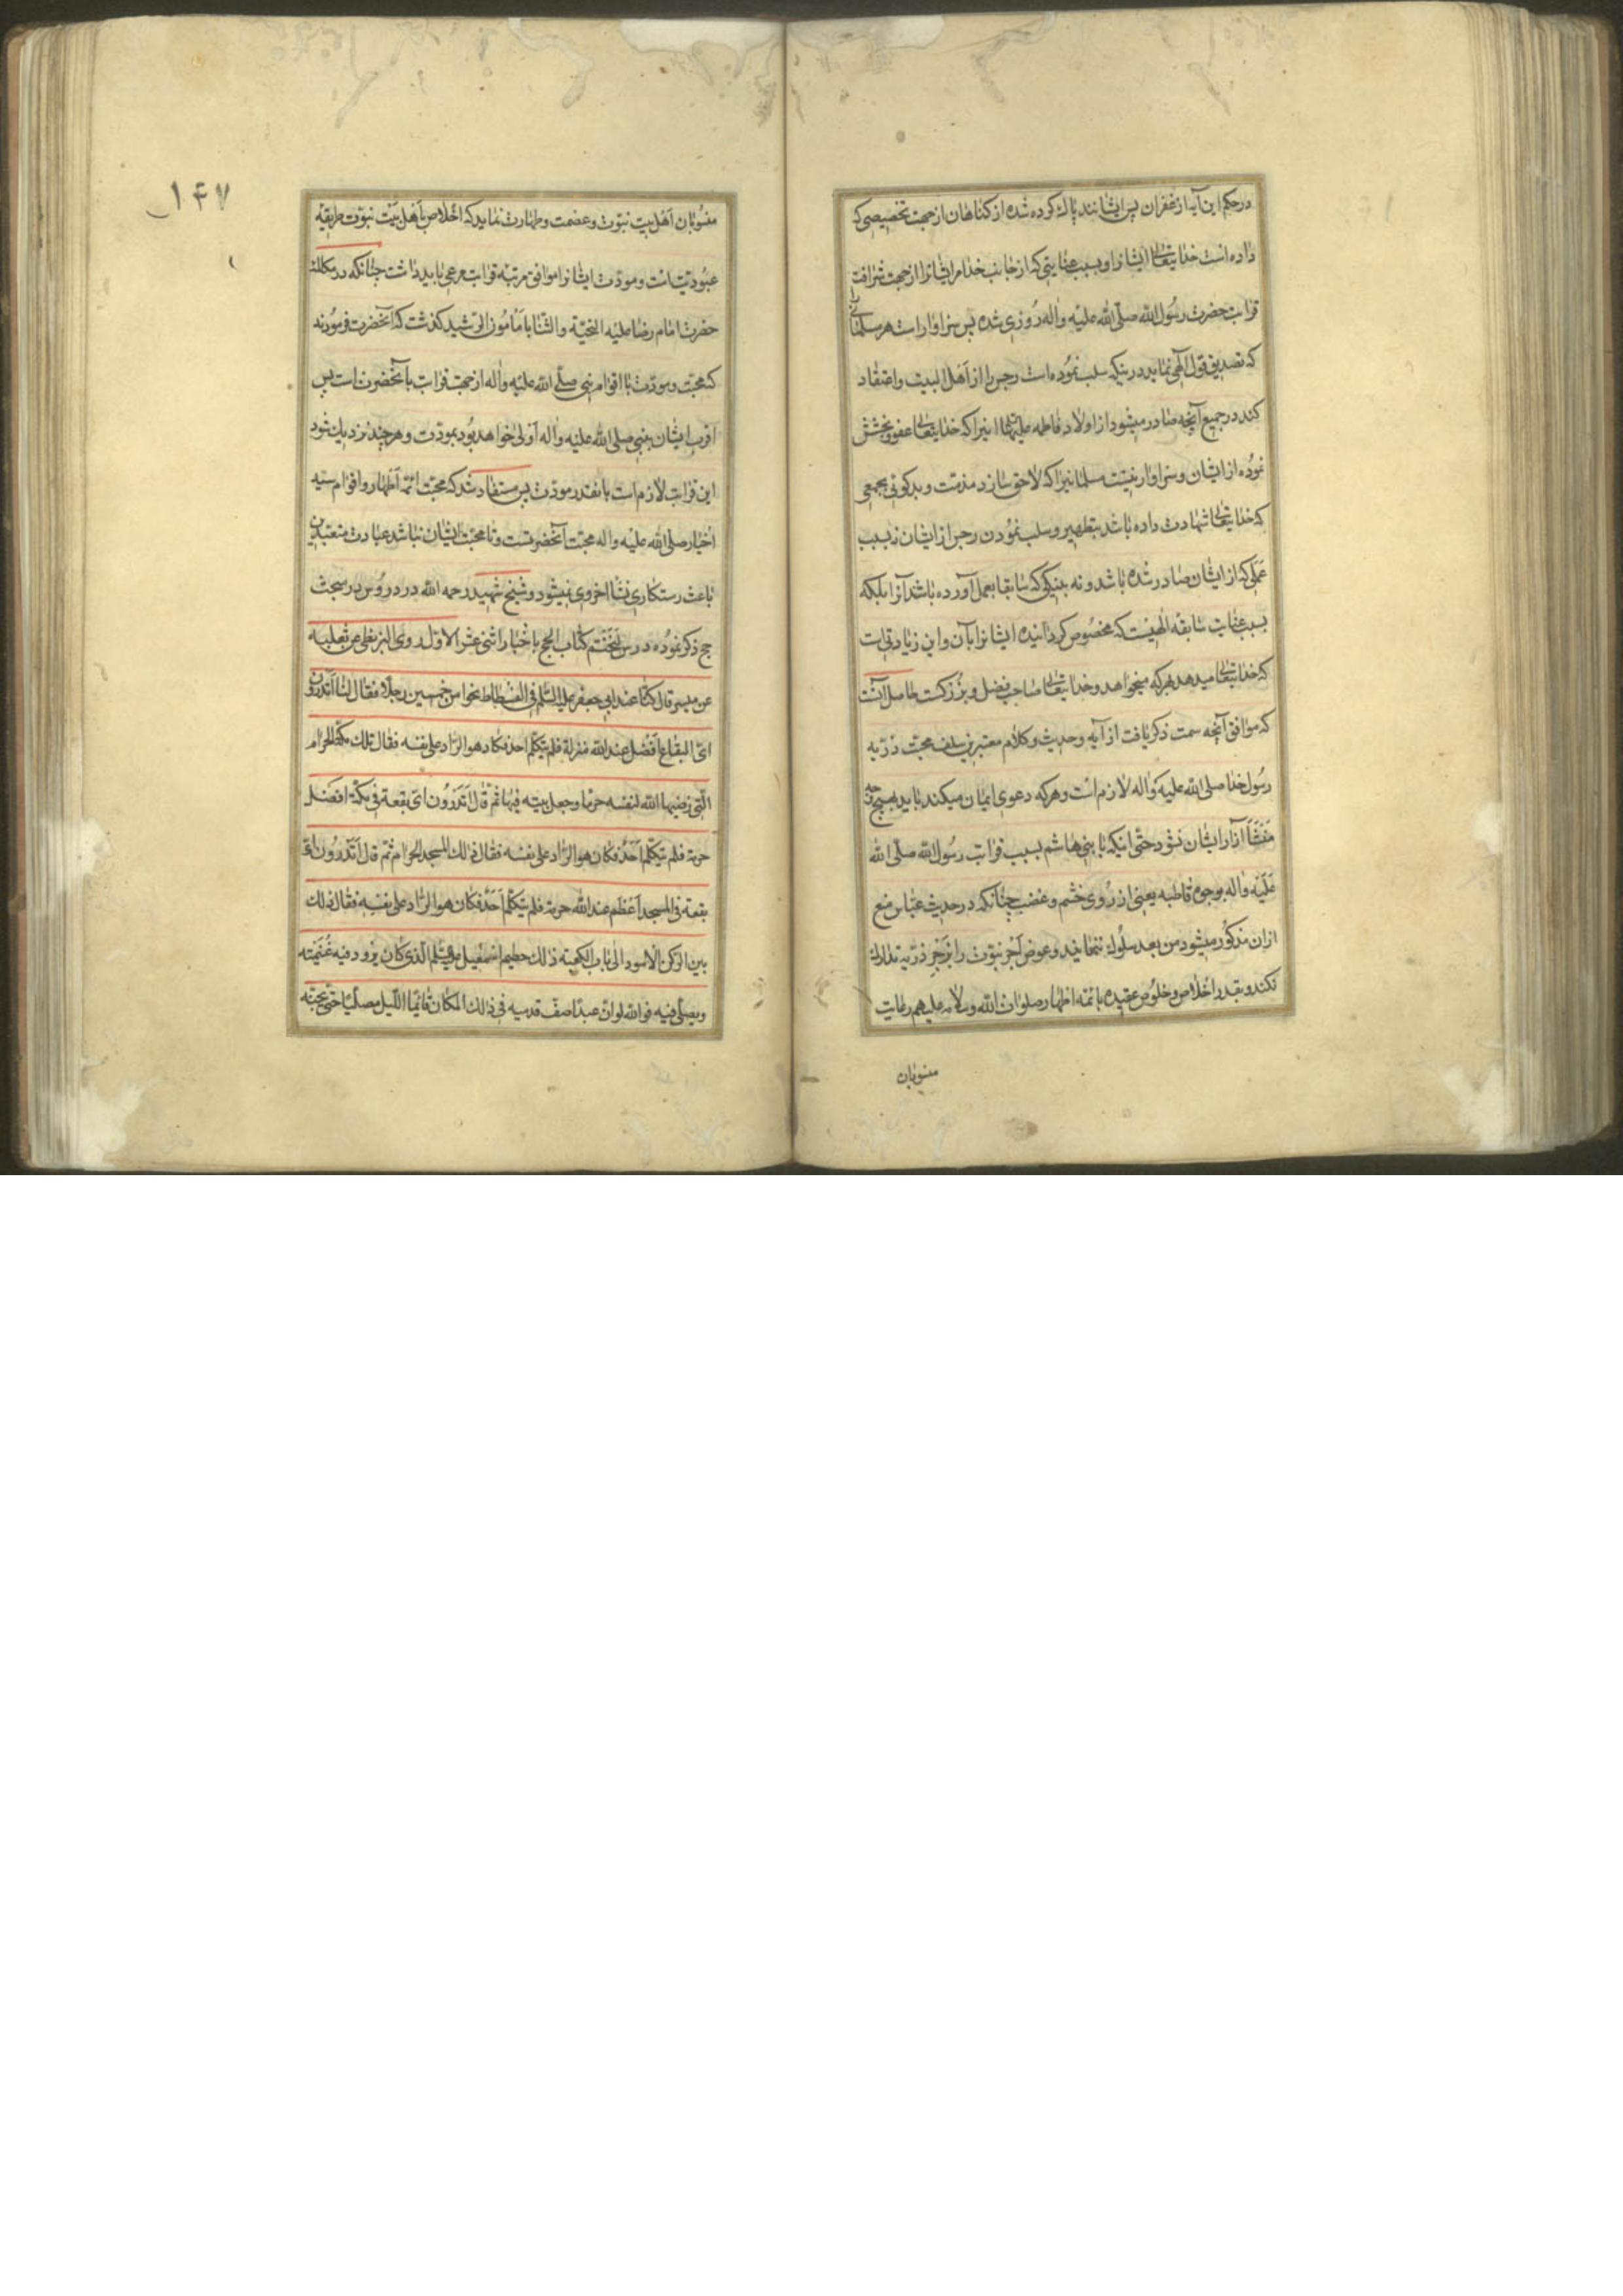 درحکم این آیه از غفران پس ایشانند پاك کرده شده از کناهان از جهت تخصیصی که
داده است خدایتعالی ایشانرا و بسبب عنایتی که از جانب خدا مر ایشانرا از جهت شرافت
قرابت حضرت رسول الله صلّی الله علیه واله روزی شده پس سزاوار است هر مسلمانی را
که تصدیق قول آلهی نماید در اینکه سلب نموده است رجس را از اهل البیت واعتقاد
کند در جمیع آنچه صادر میشود از اولاد فاطمه علیهما انیرا که خدایتعالی عفو و بخشش
نموده از ایشان وسزاوار نیست مسلمانیرا که لاحق سازد مذمّت وبدکوئی بجمعی
که خدایتعالی شهادت داده باشد بتطهیر وسلب نمودن رجس از ایشان نه بسبب
عملی که از ایشان صادر شده باشد ونه بنیکی که سابقا بعمل آورده باشد آنرا بلکه
بسبب عنایت سابقه الهیست که مخصوص کردانیده ایشانرا بآن واین زیادتی است
که خدایتعالی میدهد بهرکه میخواهد وخدایتعالی صاحب فضل وبزرکست حاصل آنست
که موافق آنچه سمت ذکر یافت از آیه وحدیث وکلام معتبرین سلف محبّت ذرّیه
رسول خدا صلی الله علیه واله لازم است وهرکه دعوی ایمان میکند باید بهیچ وجه
منشأ آزار ایشان نشود حتّی اینکه با بنی هاشم بسبب قرابت رسول الله صلّی الله
علیه واله بوجوه قاطبه یعنی از روی خشم وغضب چنانکه در حدیث عبّاس منع
ازان مذکور میشود من بعد سلوك ننمایند وعوض اجر نبوّت را بزجر ذرّیه تدارك
نکند وبقدر اخلاص وخلوص عقیده بائمّه اطهار صلوات الله وسلامه علیهم رعایت
منسوبان
۱۴۷
منسوبان اهل بیت نبوّت وعصمت وطهارت نماید که اخلاص باهل بیت نبوّت طریقه
عبودیّت است ومودّت ایشانرا موافق مرتبه قرابت مرعی باید داشت چنانکه در مکالمه
حضرت امام رضا علیه التحیّة والثّنا با مأمون الرّشید کذشت که آنحضرت فرمودند
که محبّت ومودّت با اقوام نبی صلّی الله علیه واله از جهت قرابت بآنحضرت است پس
اقرب ایشان بنبی صلی الله علیه واله اولی خواهد بود بمودّت وهرچند نزدیك شود
این قرابت لازم است بانقدر مودّت پس مستفاد شد که محبّت ائمّه اطهار واقوام سیّد
اخیار صلّی الله علیه واله محبّت آنحضرتست وتا محبّت ایشان نباشد عبادت متعبّدین
باعث رستکاری نشأ اخروی نمیشود وشیخ شهید رحمه الله در دروس در مبحث
حج ذکر نموده درس نختتم کتاب الحج باخبار اثنی عشر الاوّل روی البزنطی عن ثعلبه
عن میسر قال کنّا عند ابی جعفر علیه السّلم فی الفسطاط نحوا من خمسین رجلا فقال لنا اتدرون
ایّ البقاع افضل عند الله منزلة فلم یتکلّم احد فکان هو الرّاد علی نفسه فقال تلك مکّة الحرام
الّتی رضیها الله لنفسه حرما وجعل بیته فیها ثمّ قال اتدرون ایّ بقعة فی مکّة افضل
حرمة فلم یتکلّم احد فکان هو الرّاد علی نفسه فقال ذلك المسجد الحرام ثمّ قال اتدرون ایّ
بقعة فی المسجد اعظم عند الله حرمة فلم یتکلّم احد فکان هو الرّاد علی نفسه فقال ذلك
بین الرّکن الاسود الی باب الکعبة ذلك حطیم اسمعیل علیه السّلم الّذی کان یزود فیه غنیمته
ویصلّی فیه فوالله لو انّ عبدا صفّ قدمیه فی ذلك المکان قائما اللّیل مصلّیا حتّی یجنّه